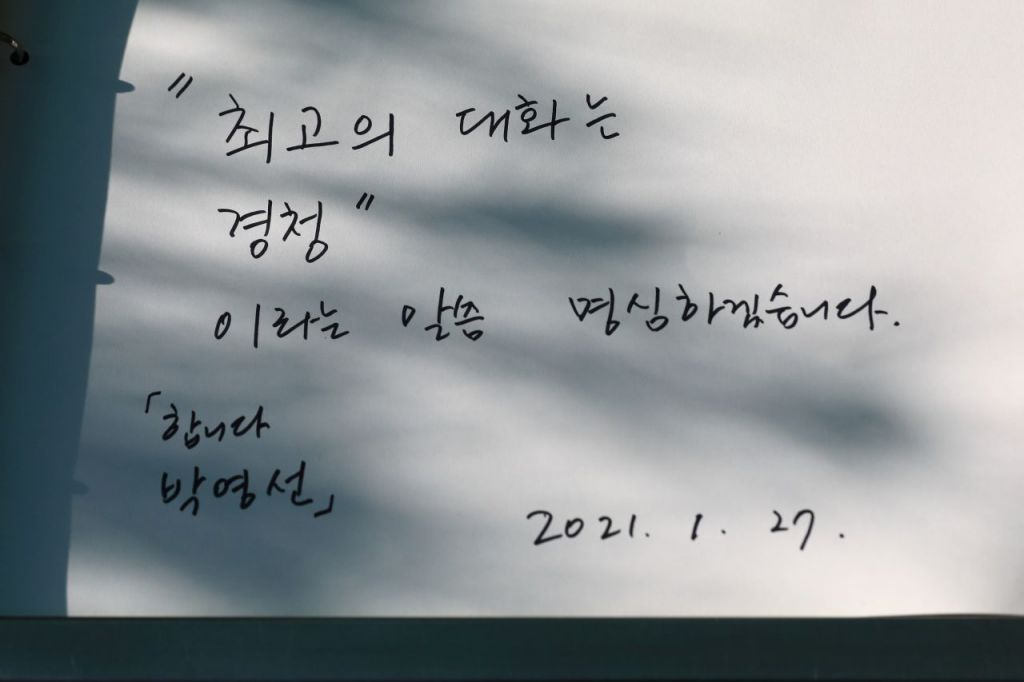 "최고의 대화는
경청"
이라는 말씀 명심하겠습니다.
「합니다
박영선」
2021. 1. 27.